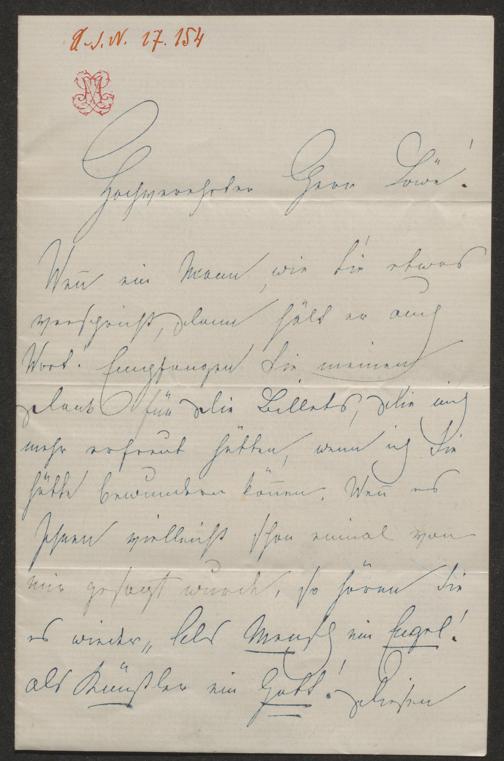 A.S.N. 17.154
Hochverehrter Herr Löwe!
Weñ ein Mann, wie Sie etwas
verspricht, dann hält er auch
Wort. Empfangen Sie meinen
Dank für die Billets, die mich
mehr erfreut hätten, wenn ich Sie
hätte bewundern können. Weñ es
Ihnen vielleicht schon einmal von
mir gesagt wurde, so hören Sie
es wieder „Als Mensch ein Engel!
als Künstler ein Gott! Diesen